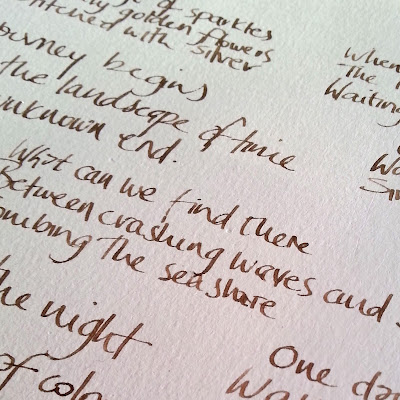 of sparkles
golden flowers
stitched with silver
Journey begins
the landscape of time
unknown end.
What can we find there
Between crashing waves and
Combing the seashore
the night
of
When
The
Waiting
Wa
Sin
One da
Wa